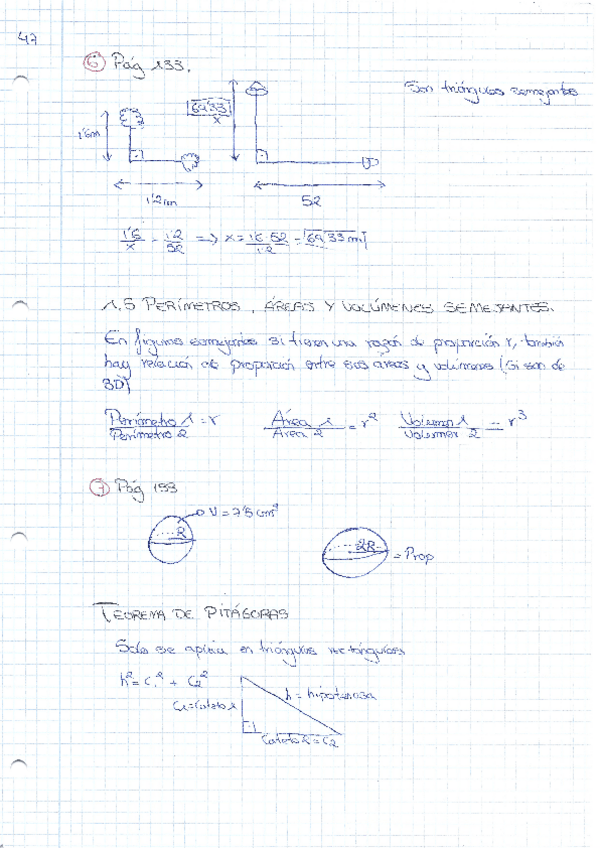 47
6 Pág 133.
Son triángulos semejantes
1'6m
69'33
x
1'2m
52
1'6/x = 1'2/52 => x = 1'6·52/1'2 = 69'33m
1.5 PERÍMETROS, ÁREAS Y VOLÚMENES SEMEJANTES.
En figuras semejantes si tienen una razón de proporción r, también
hay relación de proporción entre sus áreas y volúmenes (Si son de
3D)
Perímetro 1/Perímetro 2 = r Área 1/Área 2 = r² Volumen 1/Volumen 2 = r³
7 Pág 133
V = 75cm³
R
2R
= Prop
TEOREMA DE PITÁGORAS
Solo se aplica en triángulos rectángulos
h² = C₁² + C₂²
C1 = Cateto 1
h = hipotenusa
Cateto 2 = C2